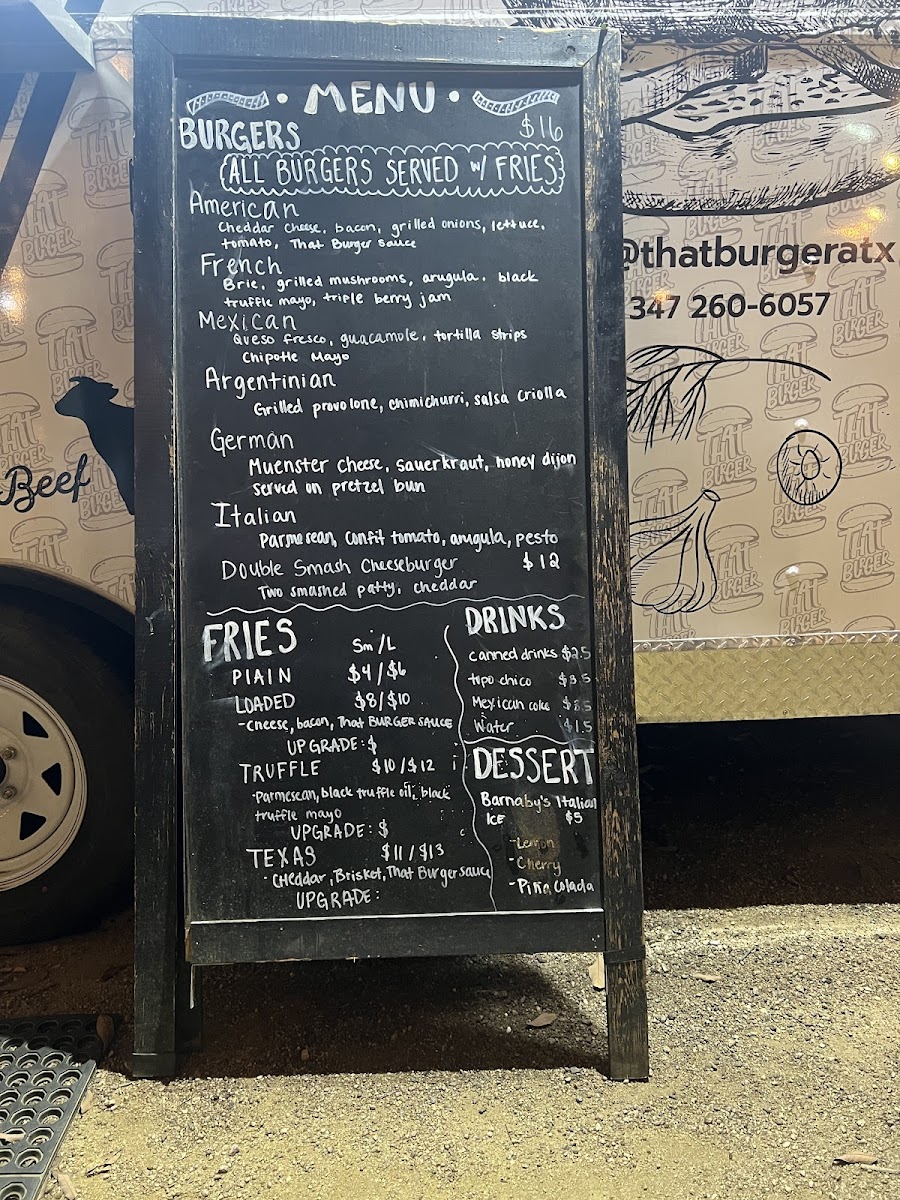 MENU
BURGERS $16
ALL BURGERS SERVED w/ FRIES
American
Cheddar Cheese, bacon, grilled onions, lettuce,
tomato, That Burger Sauce
French
Brie, grilled mushrooms, arugula, black
truffle mayo, triple berry jam
Mexican
Queso fresco, guacamole, tortilla strips
Chipotle Mayo
Argentinian
Grilled provolone, chimichurri, salsa criolla
German
Muenster Cheese, sauerkraut, honey dijon
served on pretzel bun
Italian
Parmesean, confit tomato, arugula, pesto
Double Smash Cheeseburger $12
Two smashed patty, cheddar
FRIES Sm/L
PLAIN $4/$6
LOADED $8/$10
-cheese, bacon, That BURGER SAUCE
UPGRADE: $
TRUFFLE $10/$12
·Parmesean, black truffle oil, black
truffle mayo
UPGRADE: $
TEXAS $11/$13
·CHeddar, Brisket, That Burger sauce
UPGRADE:
DRINKS
canned drinks $2.5
topo chico $3.5
Mexican coke
Water $1.5
DESSERT
Barnaby's Italian
ICE $5
-Lemon
-Cherry
-Piña colada
@thatburgeratx
347 260-6057
Beef
THAT
BURGER